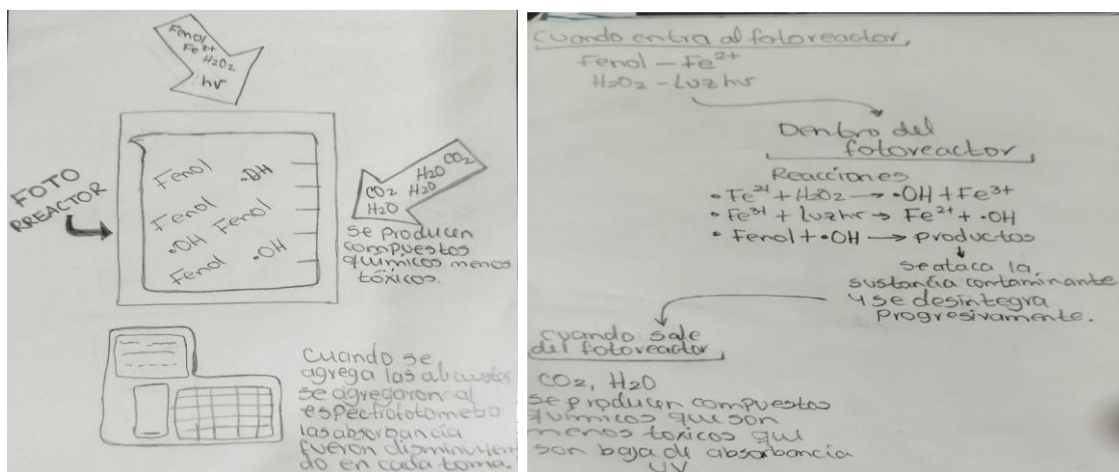 Fenol
Fe²⁺
H₂O₂
hv
FOTO
RREACTOR
Fenol
•OH
Fenol
•OH Fenol
Fenol •OH
CO₂ H₂O CO₂
H₂O H₂O
se producen
compuestos
químicos menos
tóxicos.
cuando se
agrega las
se agregaron al
espectrofotometro
las absorbancia
fueron disminuyen
do en cada toma.
cuando entra al fotoreactor,
Fenol – Fe²⁺
H₂O₂ – Luz hv
Dentro del
fotoreactor
Reacciones
• Fe²⁺ + H₂O₂ → •OH + Fe³⁺
• Fe³⁺ + Luz hv → Fe²⁺ + •OH
• Fenol + •OH → productos
se ataca la
sustancia contaminante
y se desintegra
progresivamente.
cuando sale
del fotoreactor,
CO₂, H₂O
se producen compuestos
químicos que son
menos toxicos que
son baja de absorbancia
UV